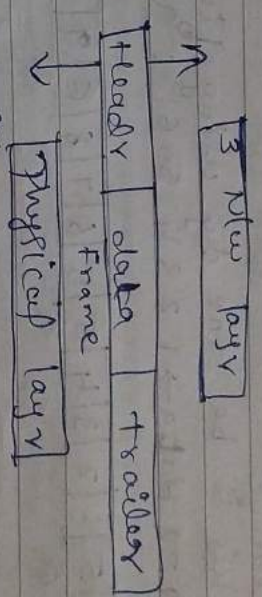 3 N/w layr
Headr data trailer
Frame
Physical layr